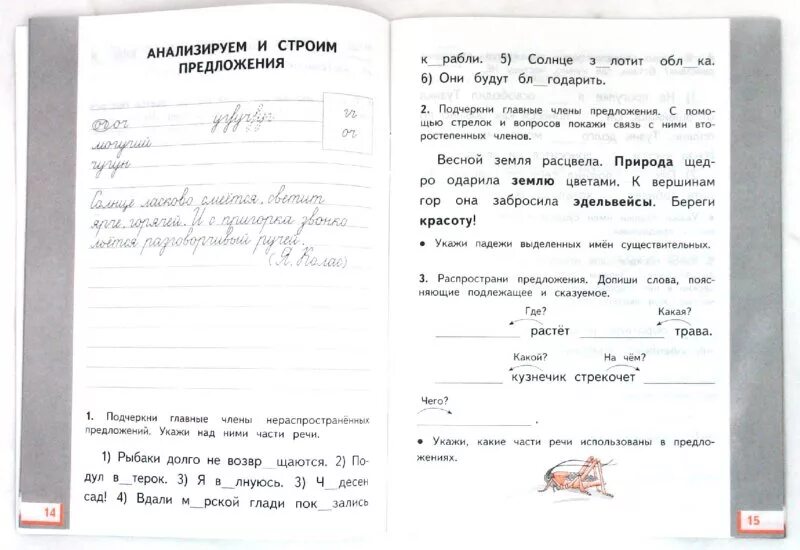 АНАЛИЗИРУЕМ И СТРОИМ
ПРЕДЛОЖЕНИЯ
гг
ог
могучий
чугун
Солнце ласково смеётся, светит
ярче, горячей. И с пригорка звонко
льётся разговорчивый ручей.
(Я. Колас)
1. Подчеркни главные члены нераспространённых
предложений. Укажи над ними части речи.
1) Рыбаки долго не возвр__щаются. 2) По-
дул в__терок. 3) Я в__лнуюсь. 3) Ч__десен
сад! 4) Вдали м__рской глади пок__зались
14
к__рабли. 5) Солнце з__лотит обл__ка.
6) Они будут бл__годарить.
2. Подчеркни главные члены предложения. С помо-
щью стрелок и вопросов покажи связь с ними вто-
ростепенных членов.
Весной земля расцвела. Природа щед-
ро одарила землю цветами. К вершинам
гор она забросила эдельвейсы. Береги
красоту!
• Укажи падежи выделенных имён существительных.
3. Распространи предложения. Допиши слова, пояс-
няющие подлежащее и сказуемое.
Где? Какая?
____ растёт ____ трава.
Какой? На чём?
____ кузнечик стрекочет ____
Чего?
____.
• Укажи, какие части речи использованы в предло-
жениях.
15